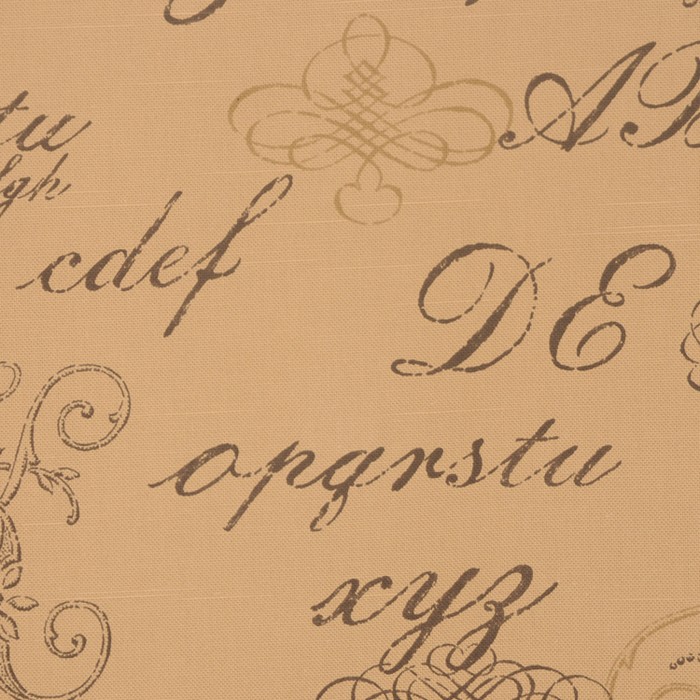 AB
tu
fgh
cdef
DE
opqrstu
xyz